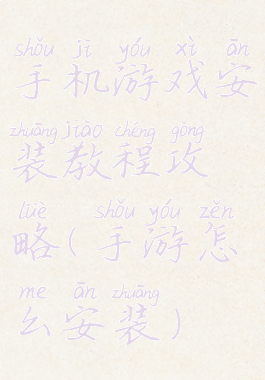 shǒu jī yóu xì ān
手机游戏安
zhuāng jiào chéng gōng
装教程攻
lüè shǒu yóu zěn
略(手游怎
me ān zhuāng
么安装)